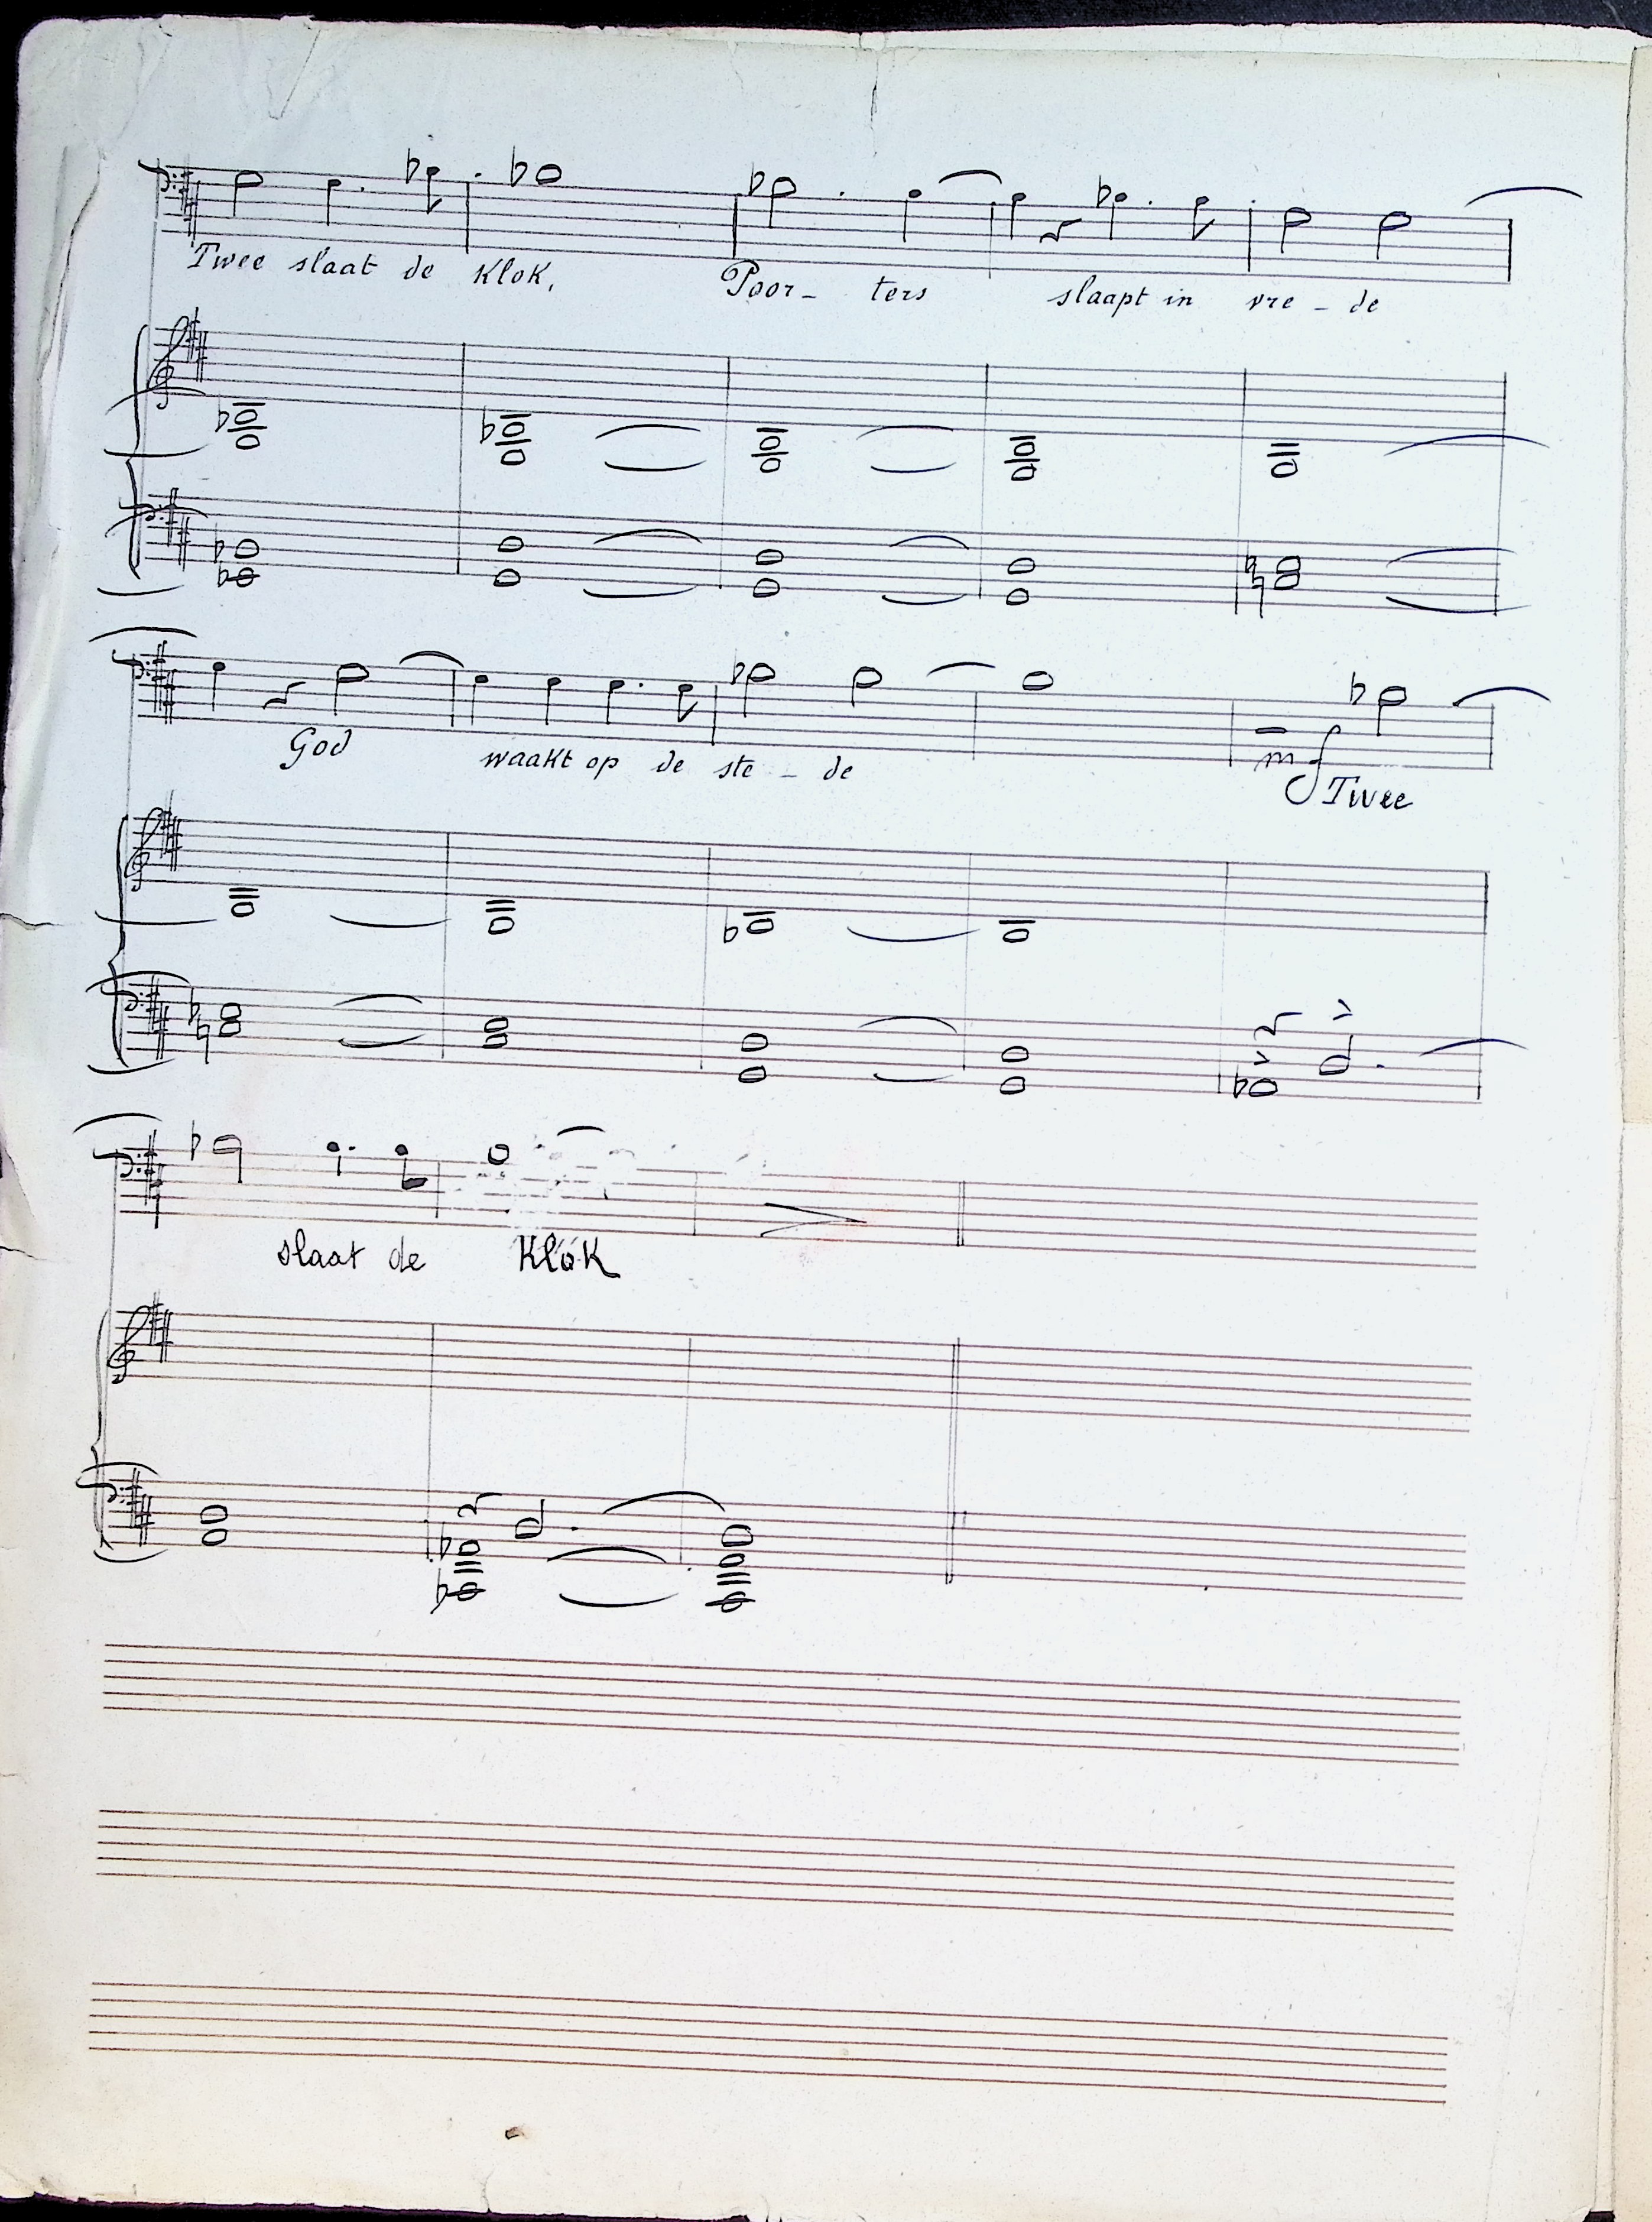 Twee slaat de klok, Poor- ters slaapt in vre - de
God waakt op de ste - de
mf
Twee
slaat de Klok